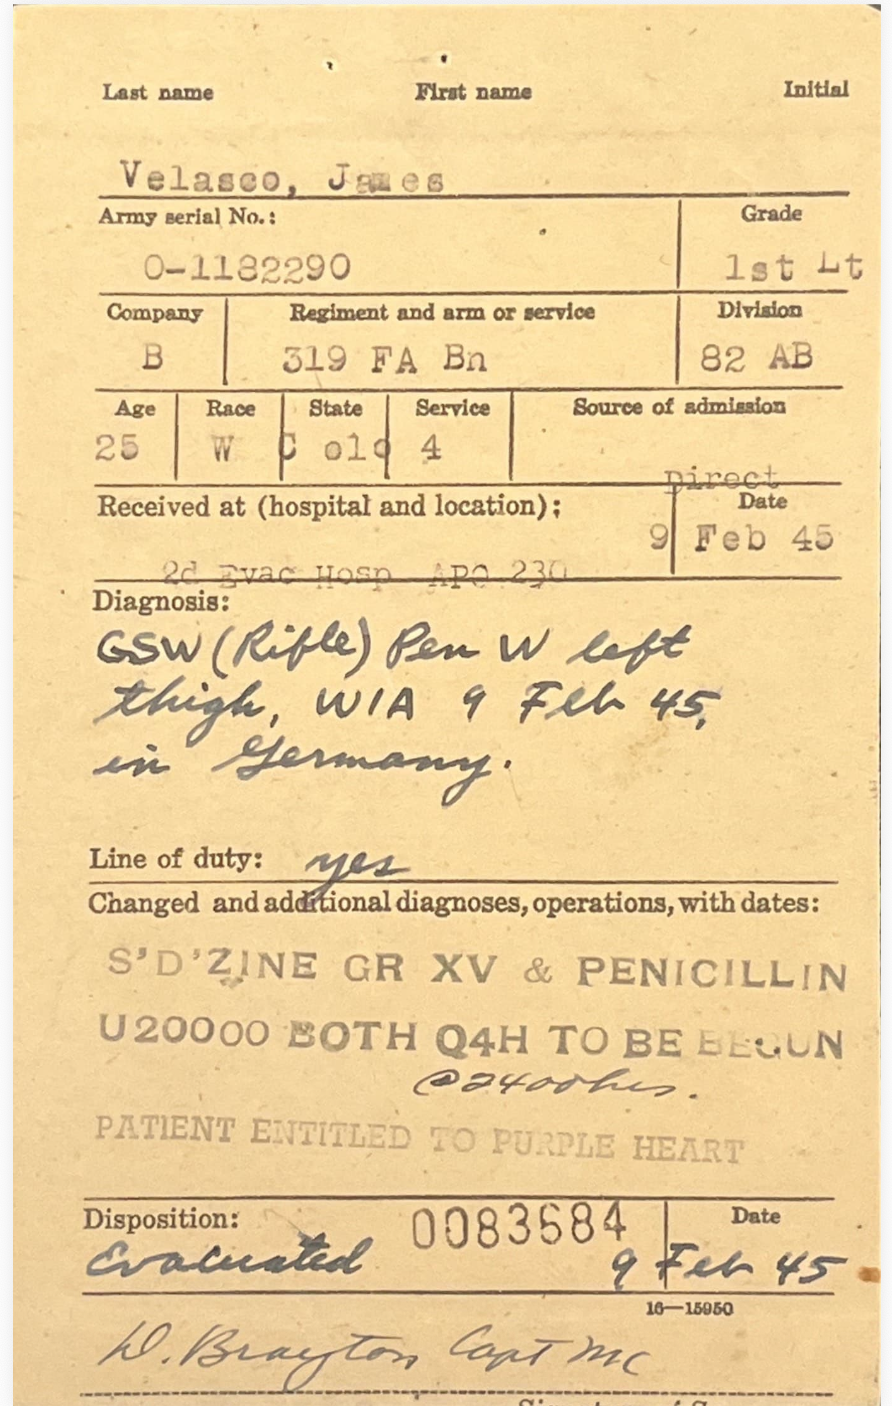 Last name First name Initial
Velasco, James
Army serial No.: Grade
O-1182290 1st Lt
Company Regiment and arm or service Division
B 319 FA Bn 82 AB
Age Race State Service Source of admission
25 W Colo 4
Direct
Received at (hospital and location): Date
9 Feb 45
2d Evac Hosp APO 230
Diagnosis:
GSW (Rifle) Pen W left
thigh, WIA 9 Feb 45,
in Germany.
Line of duty: yes
Changed and additional diagnoses, operations, with dates:
S'D'ZINE GR XV & PENICILLIN
U20000 BOTH Q4H TO BE BEGUN
@2400hrs.
PATIENT ENTITLED TO PURPLE HEART
Disposition: 0083684 Date
Evacuated 9 Feb 45
16—15950
W. Brayton Capt MC